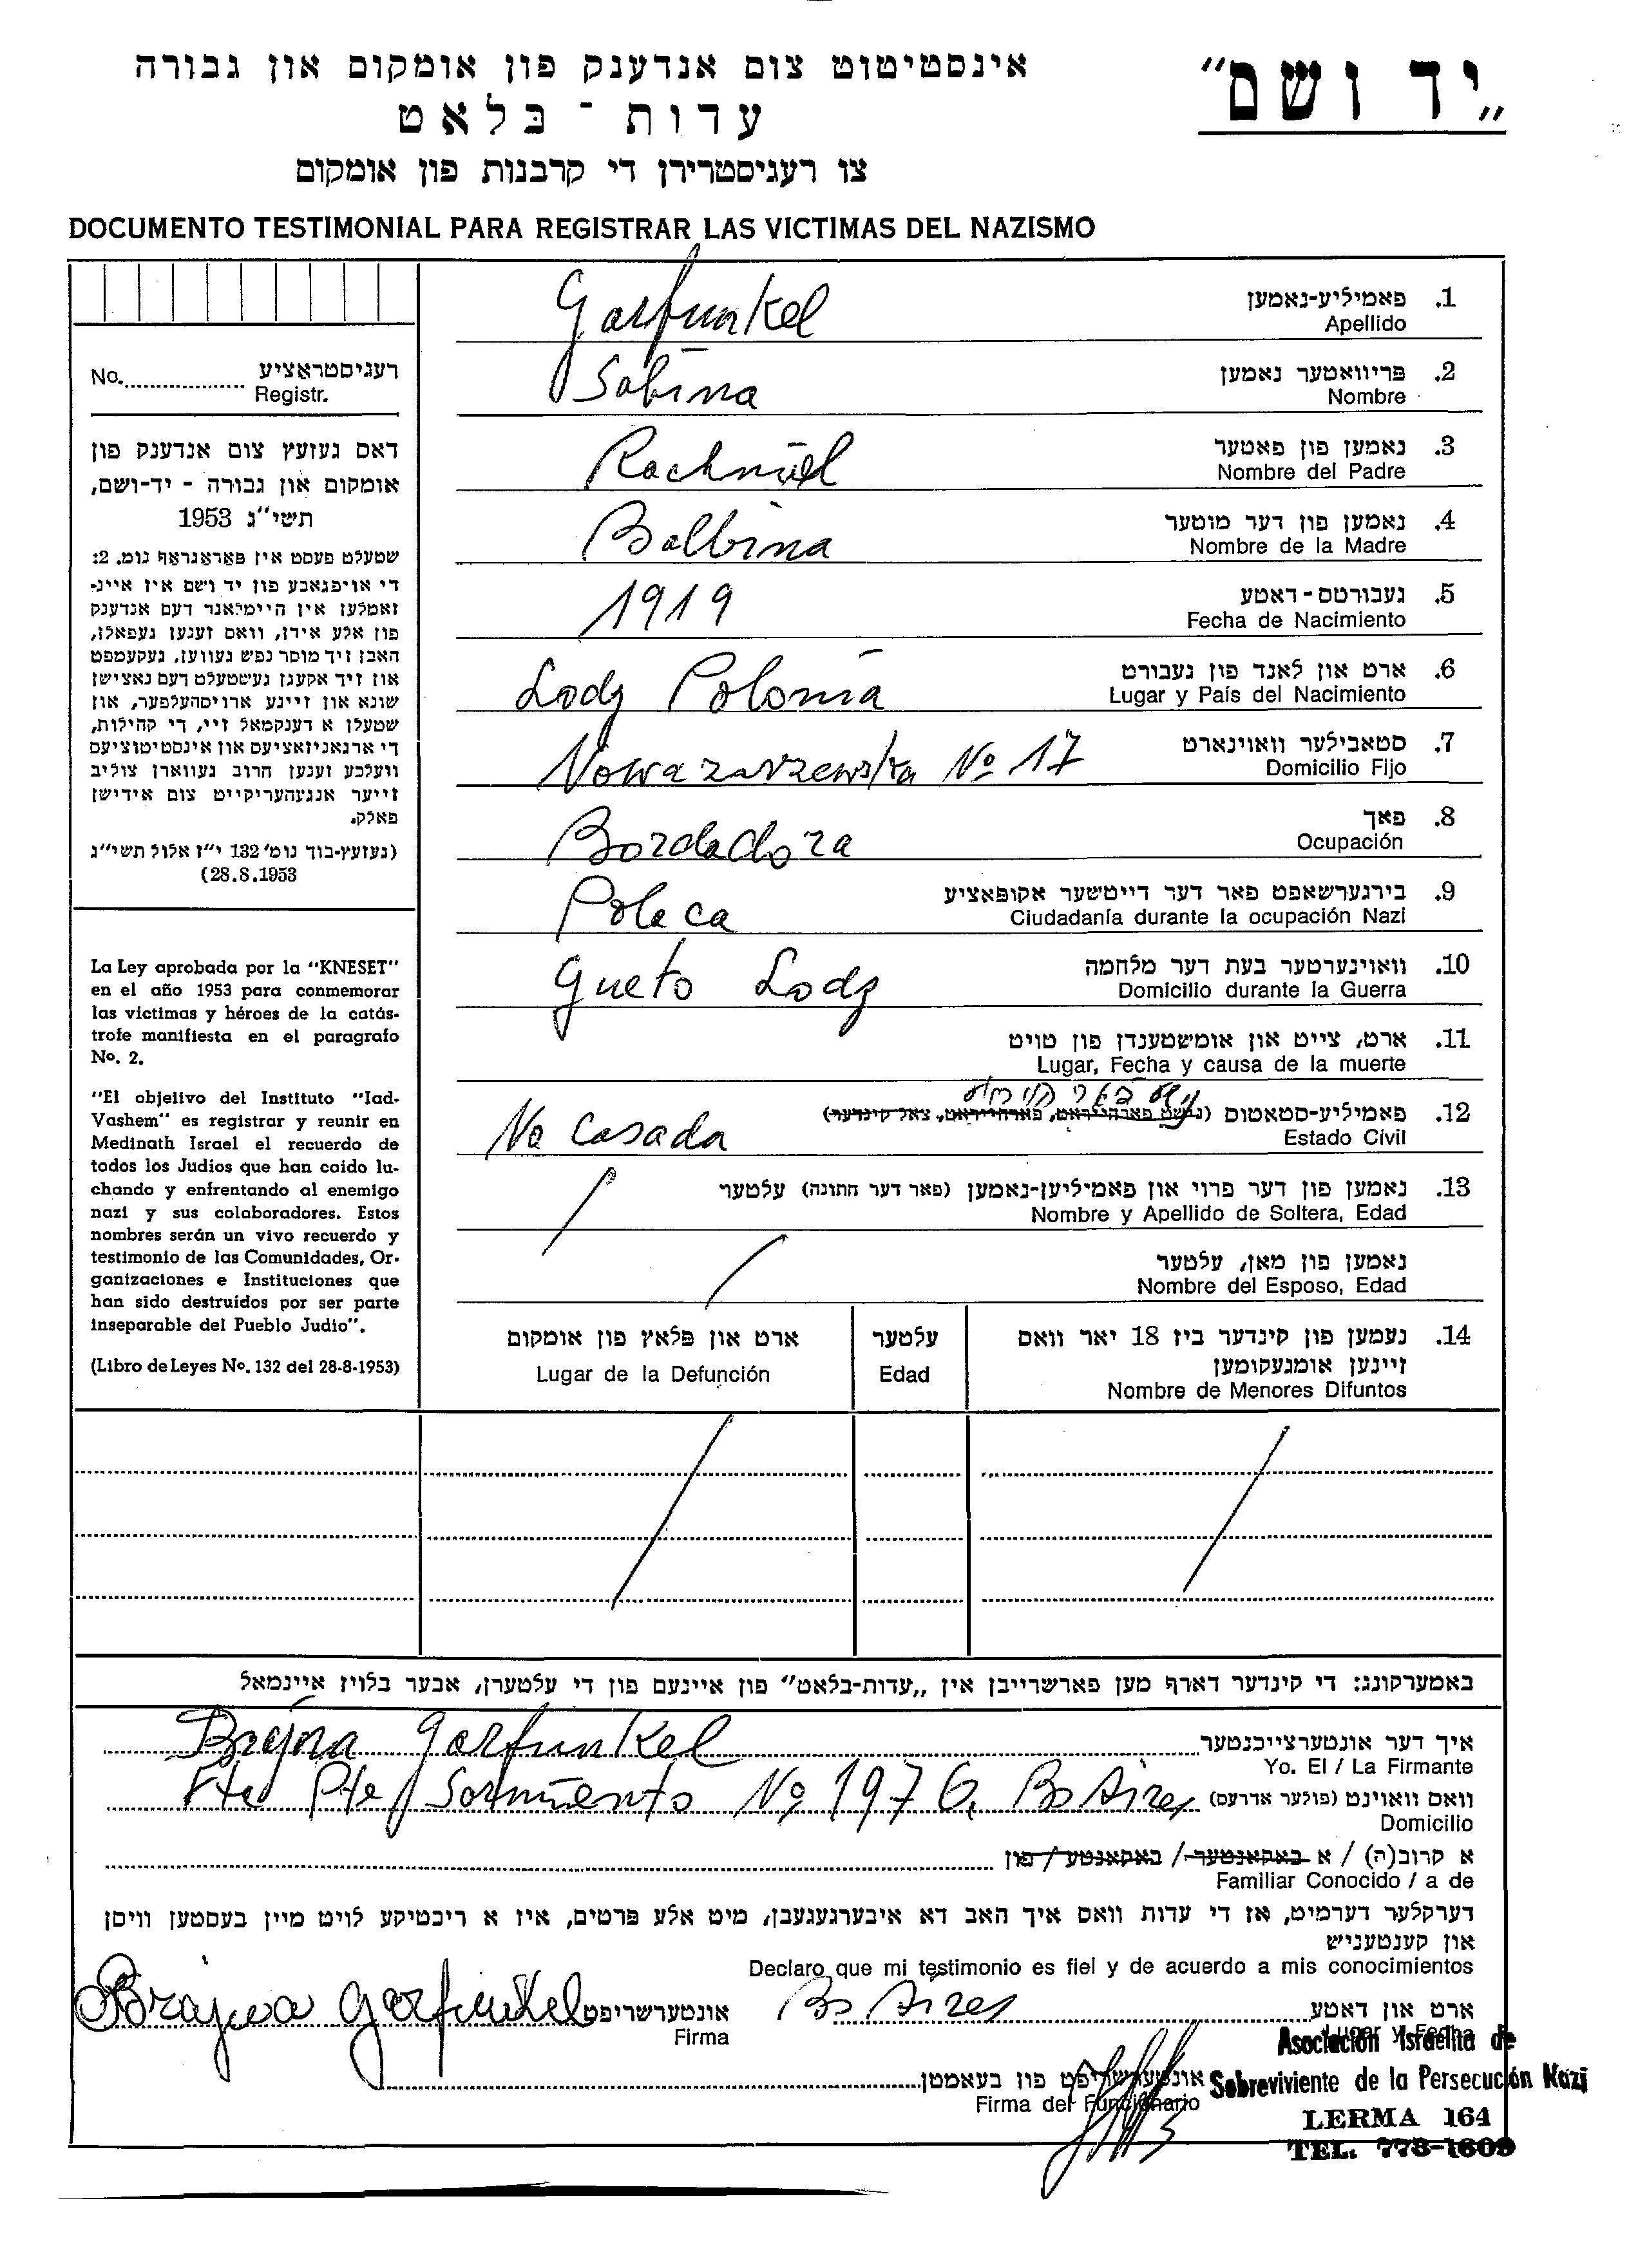 „יד ושם“
אינסטיטוט צום אנדענק פון אומקום און גבורה
עדות - בלאט
צו רעגיסטרירן די קרבנות פון אומקום
DOCUMENTO TESTIMONIAL PARA REGISTRAR LAS VICTIMAS DEL NAZISMO
No. רעגיסטראציע
Registr.
דאס געזעץ צום אנדענק פון
אומקום און גבורה - יד-ושם,
תשי"ג 1953
שטעלט פעסט אין פאראגראף נומ. 2:
די אויפגאבע פון יד ושם איז איינ-
זאמלען אין היימלאנד דעם אנדענק
פון אלע אידן, וואס זענען געפאלן,
האבן זיך מוסר נפש געווען, געקעמפט
און זיך אקעגן געשטעלט דעם נאצישן
שונא און זיינע ארויסהעלפער, און
שטעלן א דענקמאל זיי, די קהילות,
די ארגאניזאציעס און אינסטיטוציעס
וועלכע זענען חרוב געווארן צוליב
זייער אנגעהעריקייט צום אידישן
פאלק.
(געזעץ-בוך נומ' 132 י"ז אלול תשי"ג
28.8.1953)
La Ley aprobada por la "KNESET"
en el año 1953 para conmemorar
las víctimas y héroes de la catás-
trofe manifiesta en el paragrafo
No. 2.
"El objetivo del Instituto "Iad-
Vashem" es registrar y reunir en
Medinath Israel el recuerdo de
todos los Judíos que han caido lu-
chando y enfrentando al enemigo
nazi y sus colaboradores. Estos
nombres serán un vivo recuerdo y
testimonio de las Comunidades, Or-
ganizaciones e Instituciones que
han sido destruídos por ser parte
inseparable del Pueblo Judio".
(Libro de Leyes No. 132 del 28-8-1953)
1. פאמיליע-נאמען
Apellido
Garfunkel
2. פריוואטער נאמען
Nombre
Sabina
3. נאמען פון פאטער
Nombre del Padre
Rachmiel
4. נאמען פון דער מוטער
Nombre de la Madre
Balbina
5. געבורטס-דאטע
Fecha de Nacimiento
1919
6. ארט און לאנד פון געבורט
Lugar y País del Nacimiento
Lodz Polonia
7. סטאבילער וואוינארט
Domicilio Fijo
Nowazarzewska No 17
8. פאך
Ocupación
Bordadora
9. בירגערשאפט פאר דער דייטשער אקופאציע
Ciudadanía durante la ocupación Nazi
Polaca
10. וואוינערטער בעת דער מלחמה
Domicilio durante la Guerra
Gueto Lodz
11. ארט, צייט און אומשטענדן פון טויט
Lugar, Fecha y causa de la muerte
12. פאמיליע-סטאטוס (נישט פארהייראט, פארהייראט, צאל קינדער)
Estado Civil
No Casada
13. נאמען פון דער פרוי און פאמיליען-נאמען (פאר דער חתונה) עלטער
Nombre y Apellido de Soltera, Edad
נאמען פון מאן, עלטער
Nombre del Esposo, Edad
14. נעמען פון קינדער ביז 18 יאר וואס
זיינען אומגעקומען
Nombre de Menores Difuntos
עלטער
Edad
ארט און פלאץ פון אומקום
Lugar de la Defunción
באמערקונג: די קינדער דארף מען פארשרייבן אין „עדות-בלאט“ פון איינעם פון די עלטערן, אבער בלויז איינמאל
איך דער אונטערצייכנטער
Yo. El / La Firmante
Brajna Garfunkel
וואס וואוינט (פולער אדרעס)
Domicilio
Pte Sarmiento No 1976, Bs Aires
א קרוב(ה) / א באקאנטער / באקאנטע / פון
Familiar Conocido / a de
דערקלער דערמיט, אז די עדות וואס איך האב דא איבערגעגעבן, מיט אלע פרטים, איז א ריכטיקע לויט מיין בעסטען וויסן
און קענטעניש
Declaro que mi testimonio es fiel y de acuerdo a mis conocimientos
ארט און דאטע
Lugar y Fecha
Bs Aires
אונטערשריפט
Firma
Brajna Garfunkel
אונטערשריפט פון בעאמטן
Firma del Funcionario
Asociación Israelita de
Sobreviviente de la Persecución Nazi
LERMA 164
TEL. 773-1609